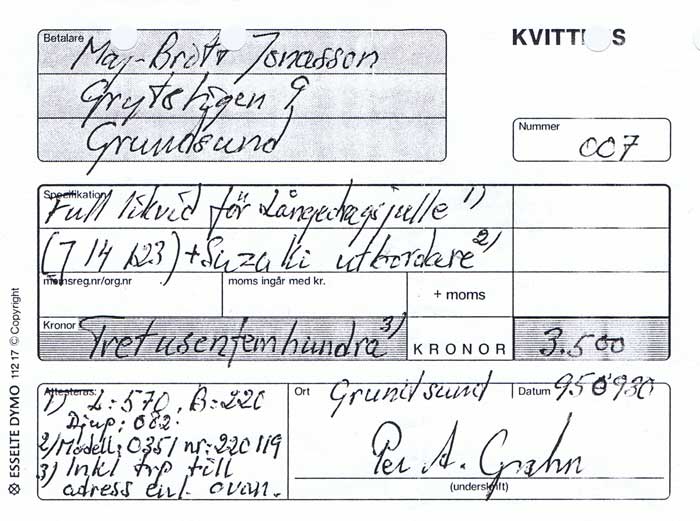 KVITT S
Betalare
Maj-Britt Jonasson
Grytstigen 9
Grundsund
Nummer
007
Specifikation
Full likvid för Långedragsjulle 1)
(7 14 123) + Suzuki utbordare 2)
momsreg.nr/org.nr
moms ingår med kr.
+ moms
Kronor
Tretusenfemhundra 3)
KRONOR
3.500
Attesteras:
1) L: 570, B: 220
Djup: 082.
2) Modell: 0351 nr: 220119
3) Inkl trp till
adress enl. ovan.
Ort
Grundsund
Datum 950930
Per A. Grahn
(underskrift)
ESSELTE DYMO 112 17 © Copyright